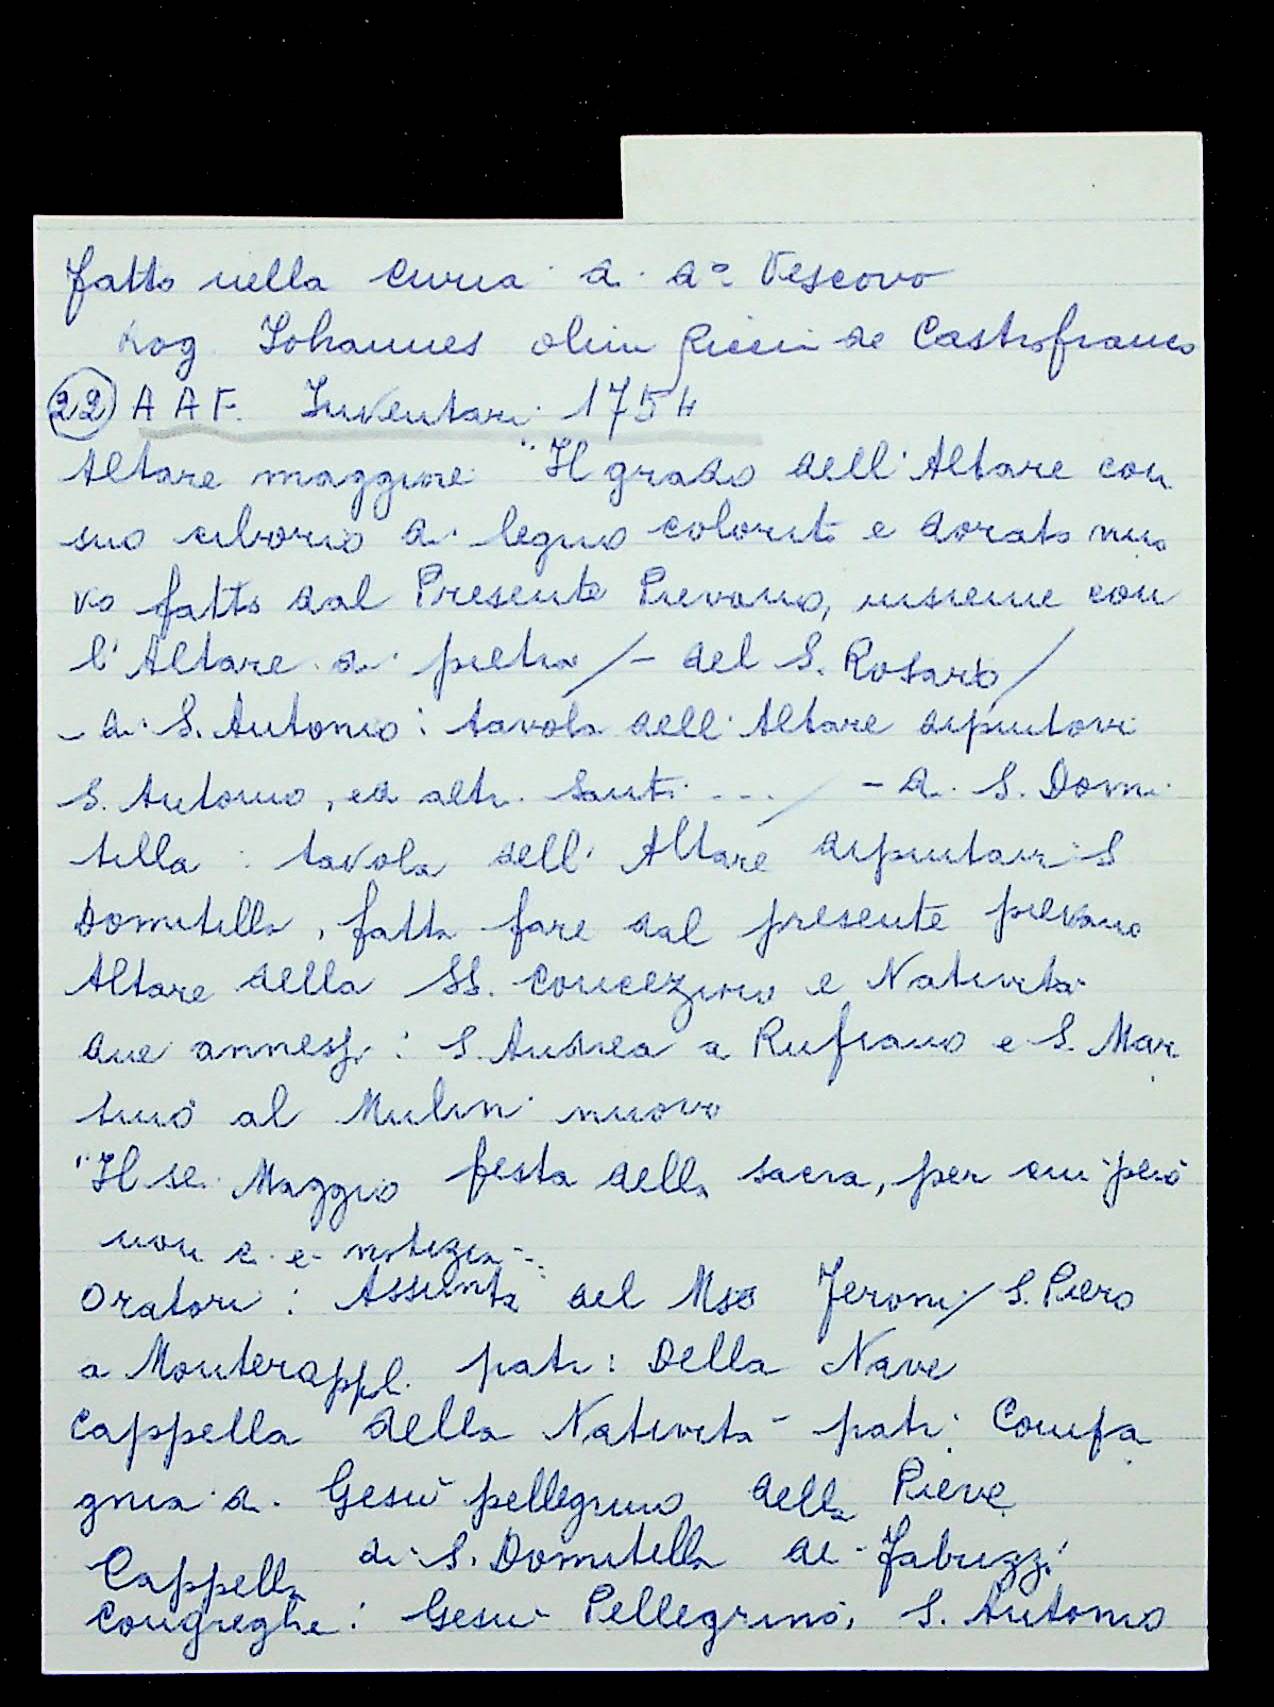 fatto nella curia di do Vescovo
Rog. Iohannes olim Ricci de Castrofranco
22 A A F. Inventari 1754
Altare maggiore "Il grado dell'Altare con
suo ciborio di legno colorito e dorato nuo
vo fatto dal Presente Pievano, insieme con
l'Altare di pietra / - del S. Rosario /
- di S. Antonio: tavola dell'Altare dipintovi
S. Antonio, ed altri Santi ... / - di S. Domi
tilla: tavola dell'Altare dipintavi S
Domitilla, fatta fare dal presente pievano
Altare della SS. Concezione e Natività
due annessi: S. Andrea a Rufiano e S. Mar
tino al Mulin nuovo
"Il sei Maggio festa della sacra, per cui però
non c'è notizia"
Oratori: Assunta del Mso Jeromi / S. Piero
a Monterappl. patr: Della Nave
Cappella della Natività - patr: Compa
gnia di Gesù pellegrino della Pieve
Cappella di S. Domitilla de' Fabuzzi
Congreghe: Gesù Pellegrino, S. Antonio